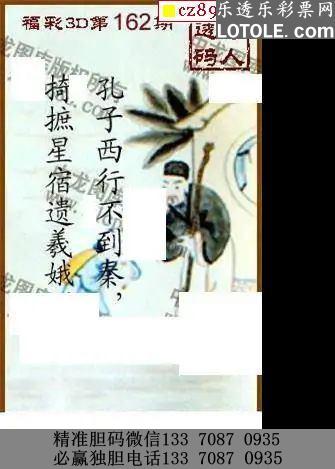 cz89
乐透乐彩票网
LOTOLE.COM
福彩3D第162期
透码人
孔子西行不到秦，
掎摭星宿遗羲娥
精准胆码微信133 7087 0935
必赢独胆电话133 7087 0935